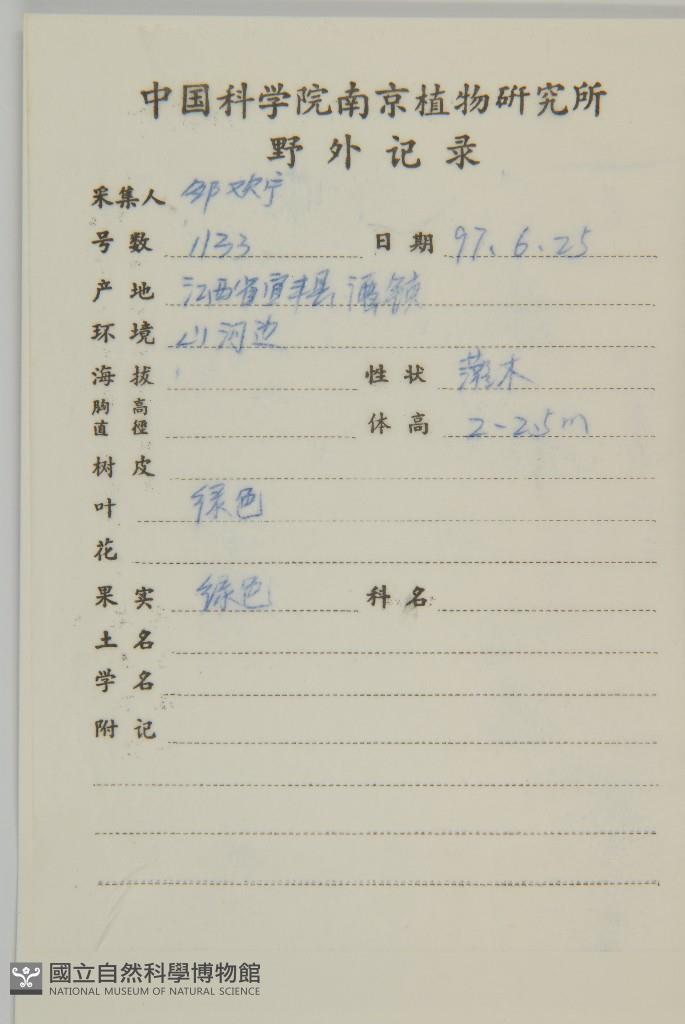 中国科学院南京植物研究所
野外记录
采集人 邹欢宁
号数 1133 日期 97.6.25
产地 江西省宜丰县 潭镇
环境 山河边
海拔 性状 灌木
胸高直径 体高 2-2.5m
树皮
叶 绿色
花
果实 绿色 科名
土名
学名
附记
國立自然科學博物館
NATIONAL MUSEUM OF NATURAL SCIENCE